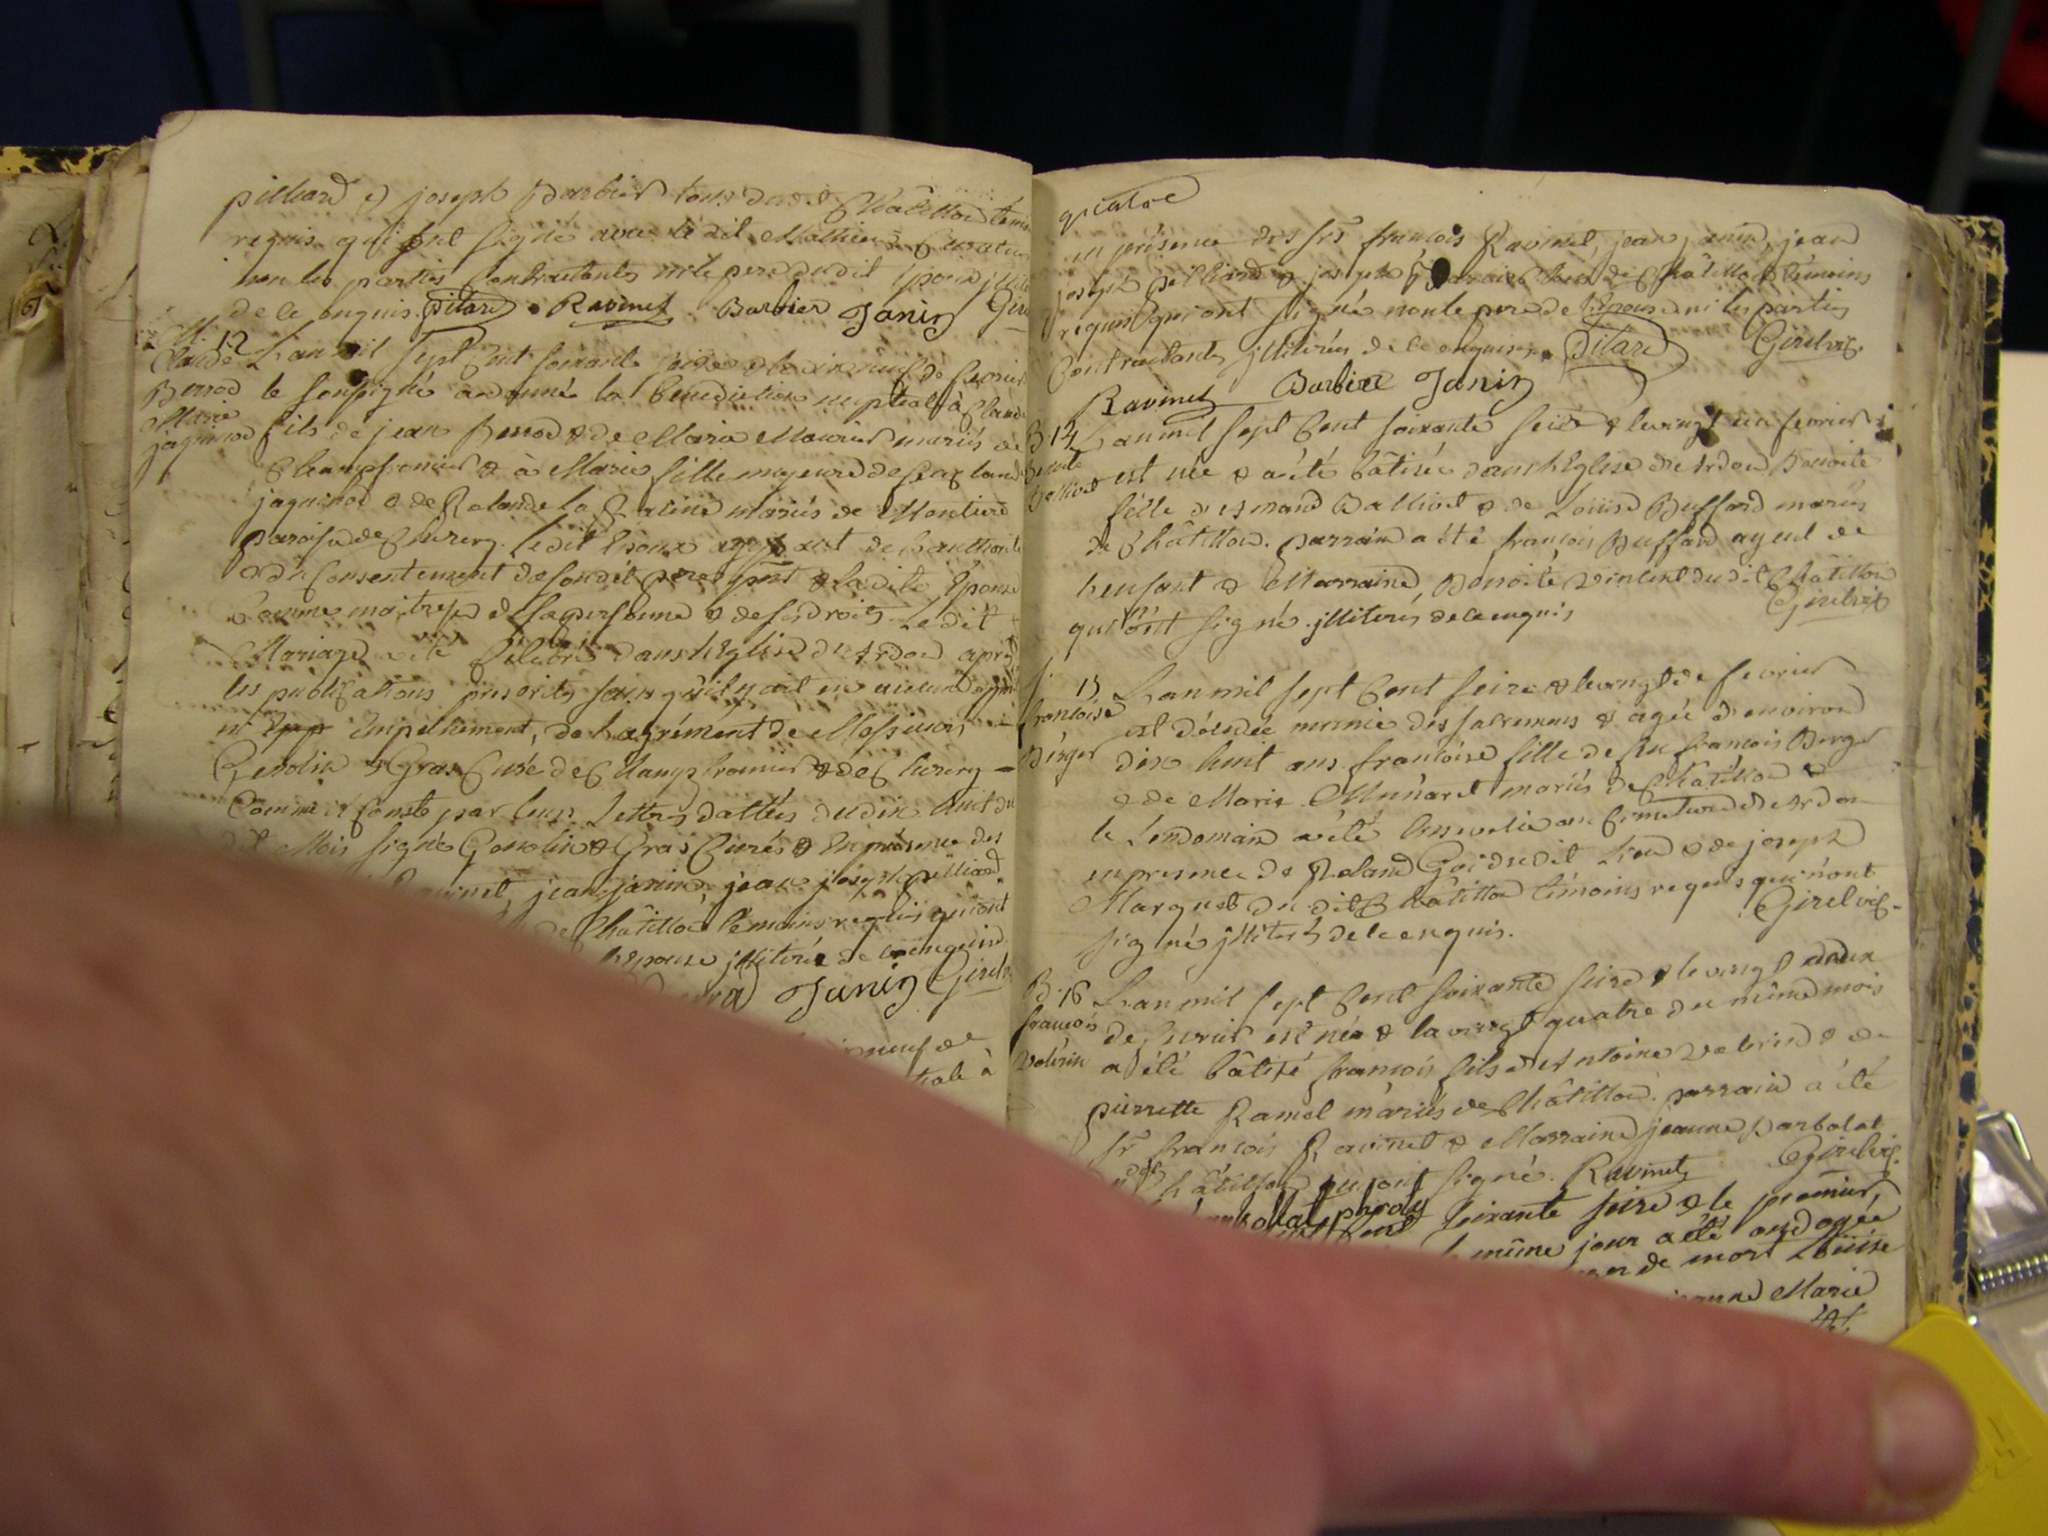 pilliard & joseph Barbier tous dudit Châtillon témoins
requis qui ont signé avec le dit Mathieu Curateur
non les parties Contractantes ni le pere dudit Epoux
de ce enquis. pilard Ravinet Barbier Janin Girel
M. 12
Claude
Berrod
& Marie
jaquinod
L'an mil sept Cent soixante seize & le dix neuf de fevrier
le soussigné a donné la benediction nuptiale à Claude
fils de jean Berrod & de Marie Mourier mariés de
Champfromier & à Marie fille majeure de feu Claude
jaquinod & de Rolande La Racine mariés de Montiere
Paroisse de Chezery. Le dit Epoux agissant de l'authorité
& du Consentement de son dit pere pnt & la dite Epouse
Comme maitresse de sa personne & de ses droits. Le dit
Mariage a été Celebré dans l'Eglise d'Ardon après
les publications prescrites sans qu'il y ait eu aucune
ni Empechement, de l'agrément de Messieurs
Genolin & Gras Curé de Champfromier & de Chezery
Comme il conste par leurs Lettres dattées du dix huit du
dit Mois signé Genolin & Gras Curés & En présence des
Ravinet, jean janin, jean joseph pilliard
de Châtillon témoins requis qui ont
l'Epouse illiterés de ce enquis
Janin Girel
neuf de
tiale à
quatre
en présence des srs francois Ravinet, jean janin, jean
joseph pilliard & joseph Barbier tous de Châtillon témoins
requis qui ont signé non le pere de l'Epouse ni les parties
Contractantes illiterés de ce enquis. Pilard Girel vic.
Ravinet Barbier Janin
B 14
Benoite
Ballivet
L'an mil sept Cent soixante seize & le vingt un fevrier
est née & a été bâtisée dans l'Eglise d'Ardon Benoite
fille d'Armand Ballivet & de Loüise Buffard mariés
de Châtillon. parrain a été francois Buffard ayeul de
l'enfant & Marraine, Benoite Vincent dudit Châtillon
qui n'ont signé illiterés de ce enquis Girel vic
15
francoise
Berger
L'an mil sept Cent seize & le vingt de fevrier
est décedée munie des sacremens & agée d'environ
dix huit ans francoise fille de feu francois Berger
& de Marie Munaret mariés de Châtillon &
le Lendemain a été Ensevelie au Cimetiere d'Ardon
en presence de Roland Goi dudit Lieu & de joseph
Marquet du dit Châtillon témoins requis qui n'ont
signé illiterés de ce enquis. Girel vic.
B. 16
francois
Valerin
L'an mil sept Cent soixante seize & le vingt deux
de fevrier est née & le vingt quatre du même mois
a été bâtisé francois fils d'Antoine Valerin & de
pierrette Ramel mariés de Châtillon. parrain a été
sr francois Ravinet & Marraine jeanne parbolat
Châtillon qui ont signé. Ravinet Girel vic.
Cent soixante seize & le premier
le même jour a été ondoyée
de mort Loüise
jeanne Marie